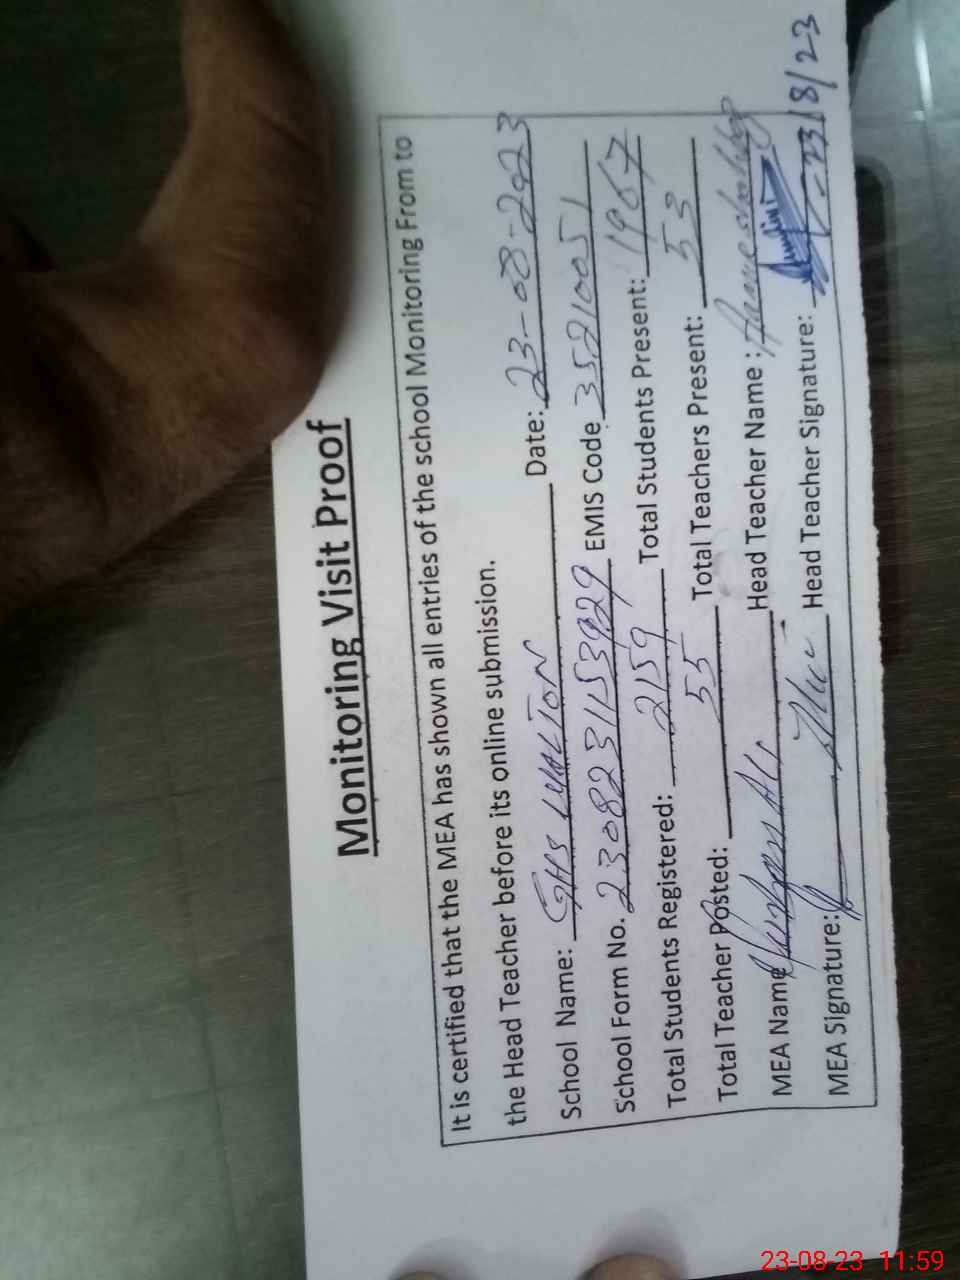 Monitoring Visit Proof
It is certified that the MEA has shown all entries of the school Monitoring From to
the Head Teacher before its online submission.
School Name: GHS Date: 23-08-2023
School Form No. EMIS Code 35210051
Total Students Registered: 2159 Total Students Present: 1967
Total Teacher Posted: 55 Total Teachers Present: 53
MEA Name Head Teacher Name :
MEA Signature: Head Teacher Signature: 23/8/23
23-08-23 11:59